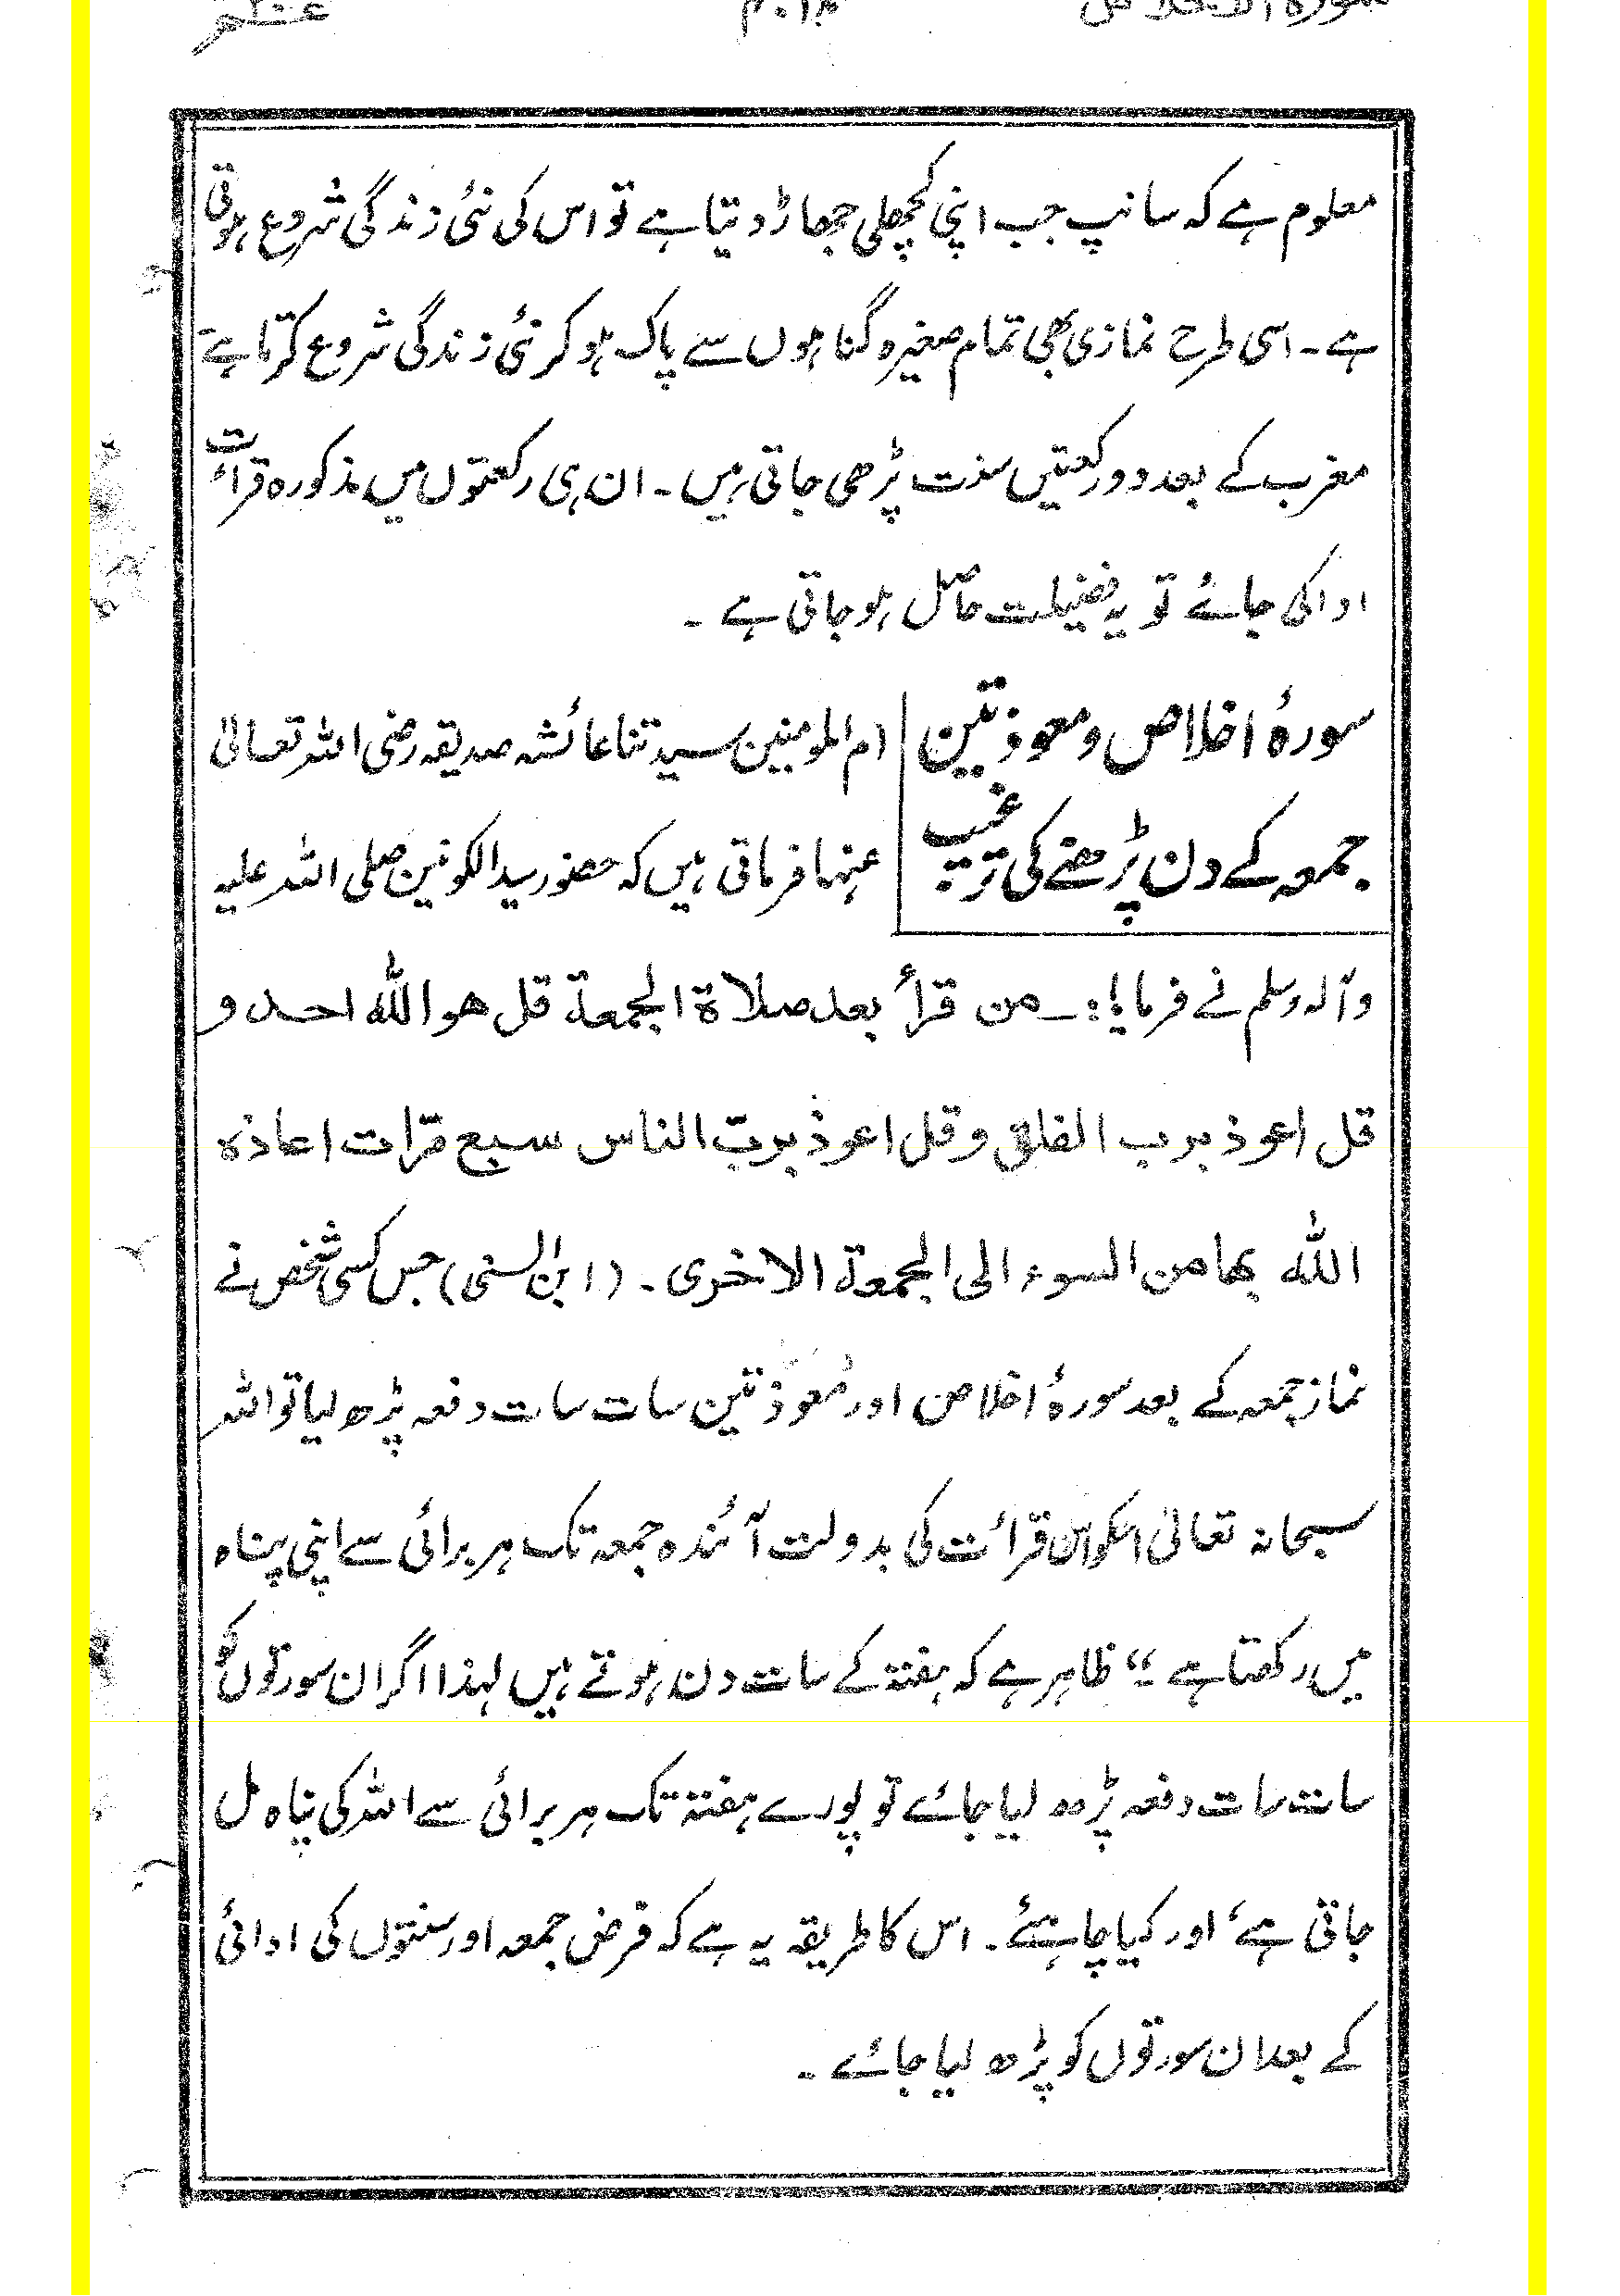 سورۃ الاخلاص
معلوم ہے کہ سانپ جب اپنی کچھلی جھاڑ دیتا ہے تو اس کی نئی زندگی شروع ہوتی
ہے۔ اسی طرح نمازی بھی تمام صغیرہ گناہوں سے پاک ہو کر نئی زندگی شروع کرتا ہے
مغرب کے بعد دو رکعتیں سنت پڑھی جاتی ہیں۔ ان ہی رکعتوں میں مذکورہ قرأت
ادا کی جائے تو یہ فضیلت حاصل ہو جاتی ہے۔
سورۂ اخلاص و معوذتین
جمعہ کے دن پڑھنے کی ترغیب
ام المومنین سیدتنا عائشہ صدیقہ رضی اللہ تعالیٰ
عنہا فرماتی ہیں کہ حضور سید الکونین صلی اللہ علیہ
وآلہ وسلم نے فرمایا:۔ من قرأ بعد صلاة الجمعة قل هو الله احد و
قل اعوذ برب الفلق و قل اعوذ بربّ الناس سبع مرّات اعاذه
الله بها من السوء الى الجمعة الاخرى۔ (ابن السنی) جس کسی شخص نے
نماز جمعہ کے بعد سورۂ اخلاص اور مُعوذتین سات سات دفعہ پڑھ لیا تو اللہ
سبحانہ تعالیٰ اسکو اس قرأت کی بدولت آئندہ جمعہ تک ہر برائی سے اپنی پناہ
میں رکھتا ہے“ ظاہر ہے کہ ہفتہ کے سات دن ہوتے ہیں لہذا اگر ان سورتوں کو
سات سات دفعہ پڑھ لیا جائے تو پورے ہفتہ تک ہر برائی سے اللہ کی پناہ مل
جاتی ہے، اور کیا چاہیئے۔ اس کا طریقہ یہ ہے کہ فرض جمعہ اور سنتوں کی ادائی
کے بعد ان سورتوں کو پڑھ لیا جائے۔